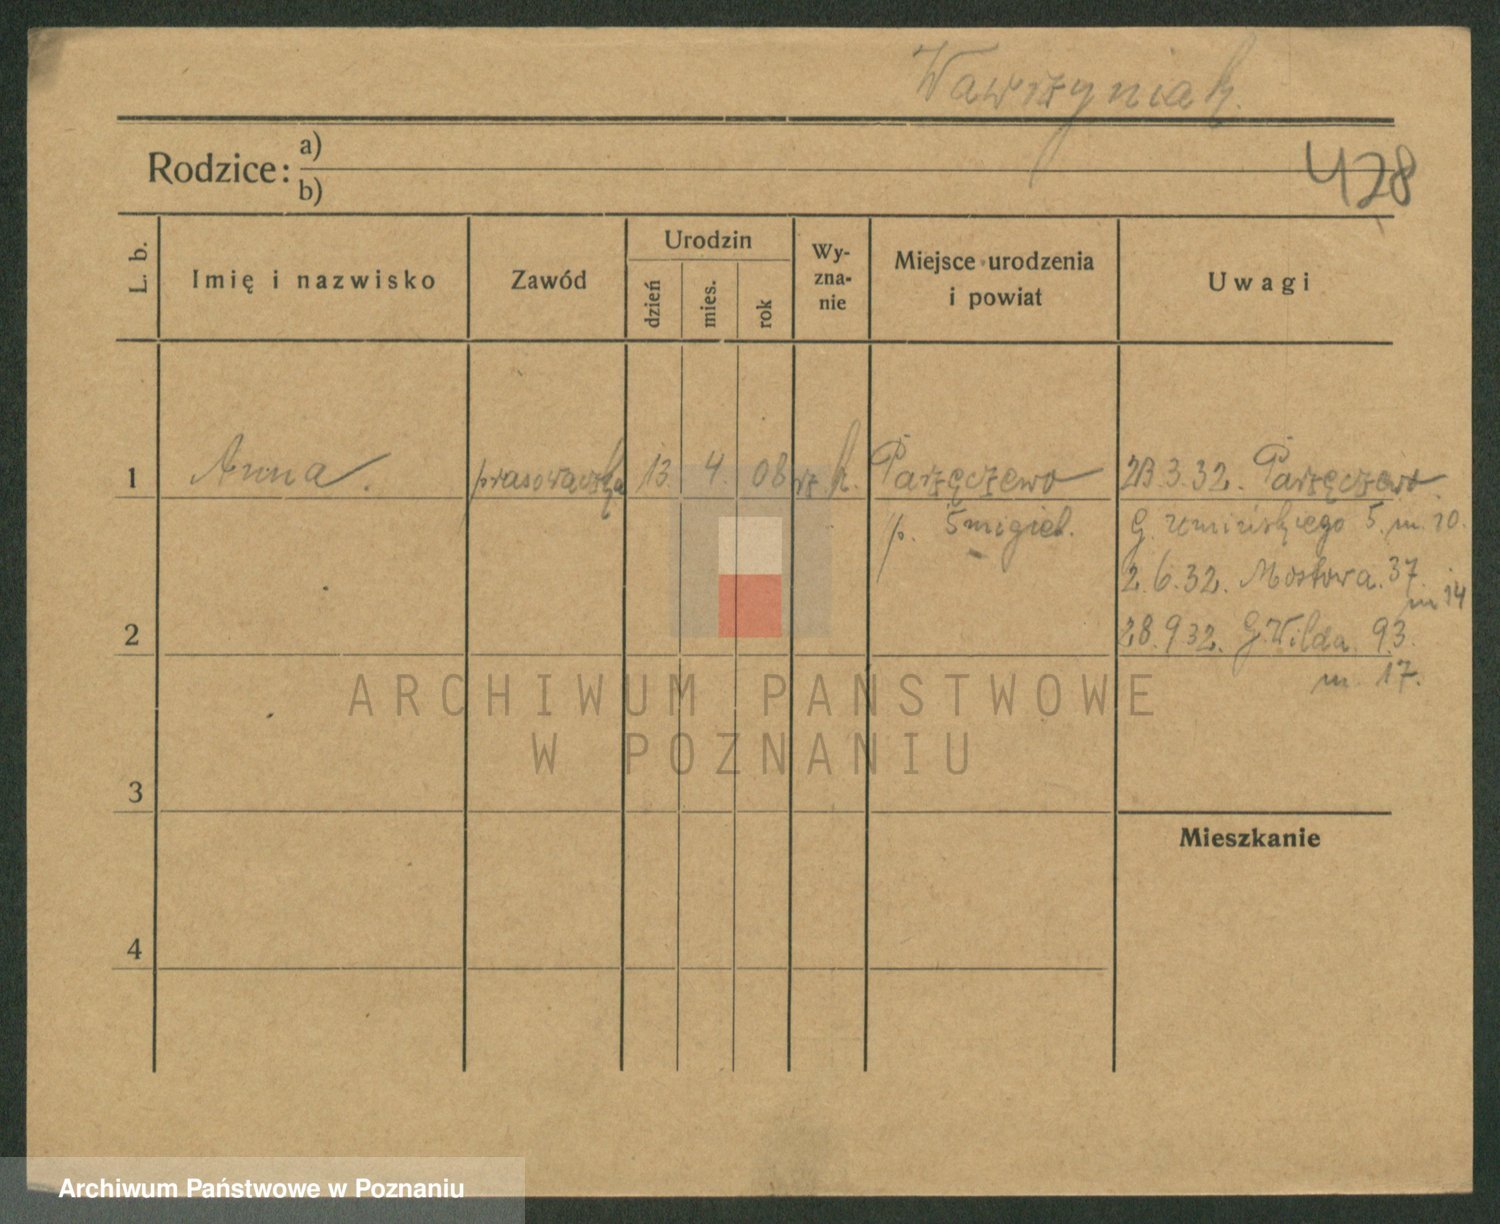 Wawrzyniak.
Rodzice: a)
b)
428
L. b.
Imię i nazwisko
Zawód
Urodzin
dzień
mies.
rok
Wy-
zna-
nie
Miejsce urodzenia
i powiat
Uwagi
1 Anna. prasowaczka 13. 4. 08 rz. k. Parzęczewo 23.3.32. Parzęczewo.
p. Śmigiel. G. Umińskiego 5. m. 10.
2.6.32. Mostowa. 37.
m 14
2 28.9.32. G. Wilda. 93.
m. 17.
ARCHIWUM PAŃSTWOWE
W POZNANIU
3
Mieszkanie
4
Archiwum Państwowe w Poznaniu